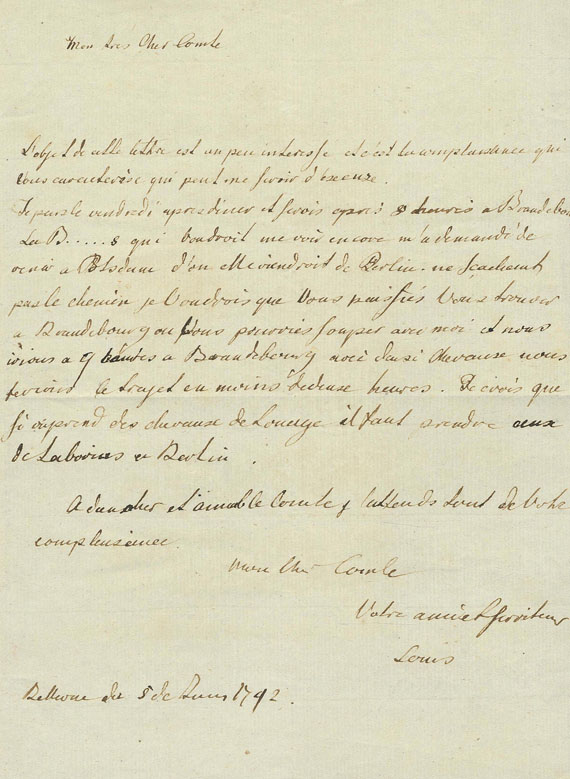 Mon tres Cher Comte
L'objet de cette lettre est un peu interesse et c'est la complaisance qui
vous caracterise qui peut me servir d'excuse.
Je pars le vendredi apres diner et serois apres 8 heures a Brandebo
La B.....s qui voudroit me voir encore m'a demandé de
venir a Potsdam d'on elle viendroit de Berlin. ne sçachant
pas le chemin je voudrois que Vous puissiés Vous trouver
a Brandebourg ou Vous pourriés souper avec moi et nous
irions a 9 heures a Brandebourg avec chevause nous
ferions le trajet en moins de deuse heures. Je crois que
si on prend des chevause de Louage il faut prendre ceux
de a Berlin.
Adieu cher et aimable Comte j'attends tout de Votre
complaisance
Mon Cher Comte
Votre ami et serviteur
Louis
du 5 de 1792.